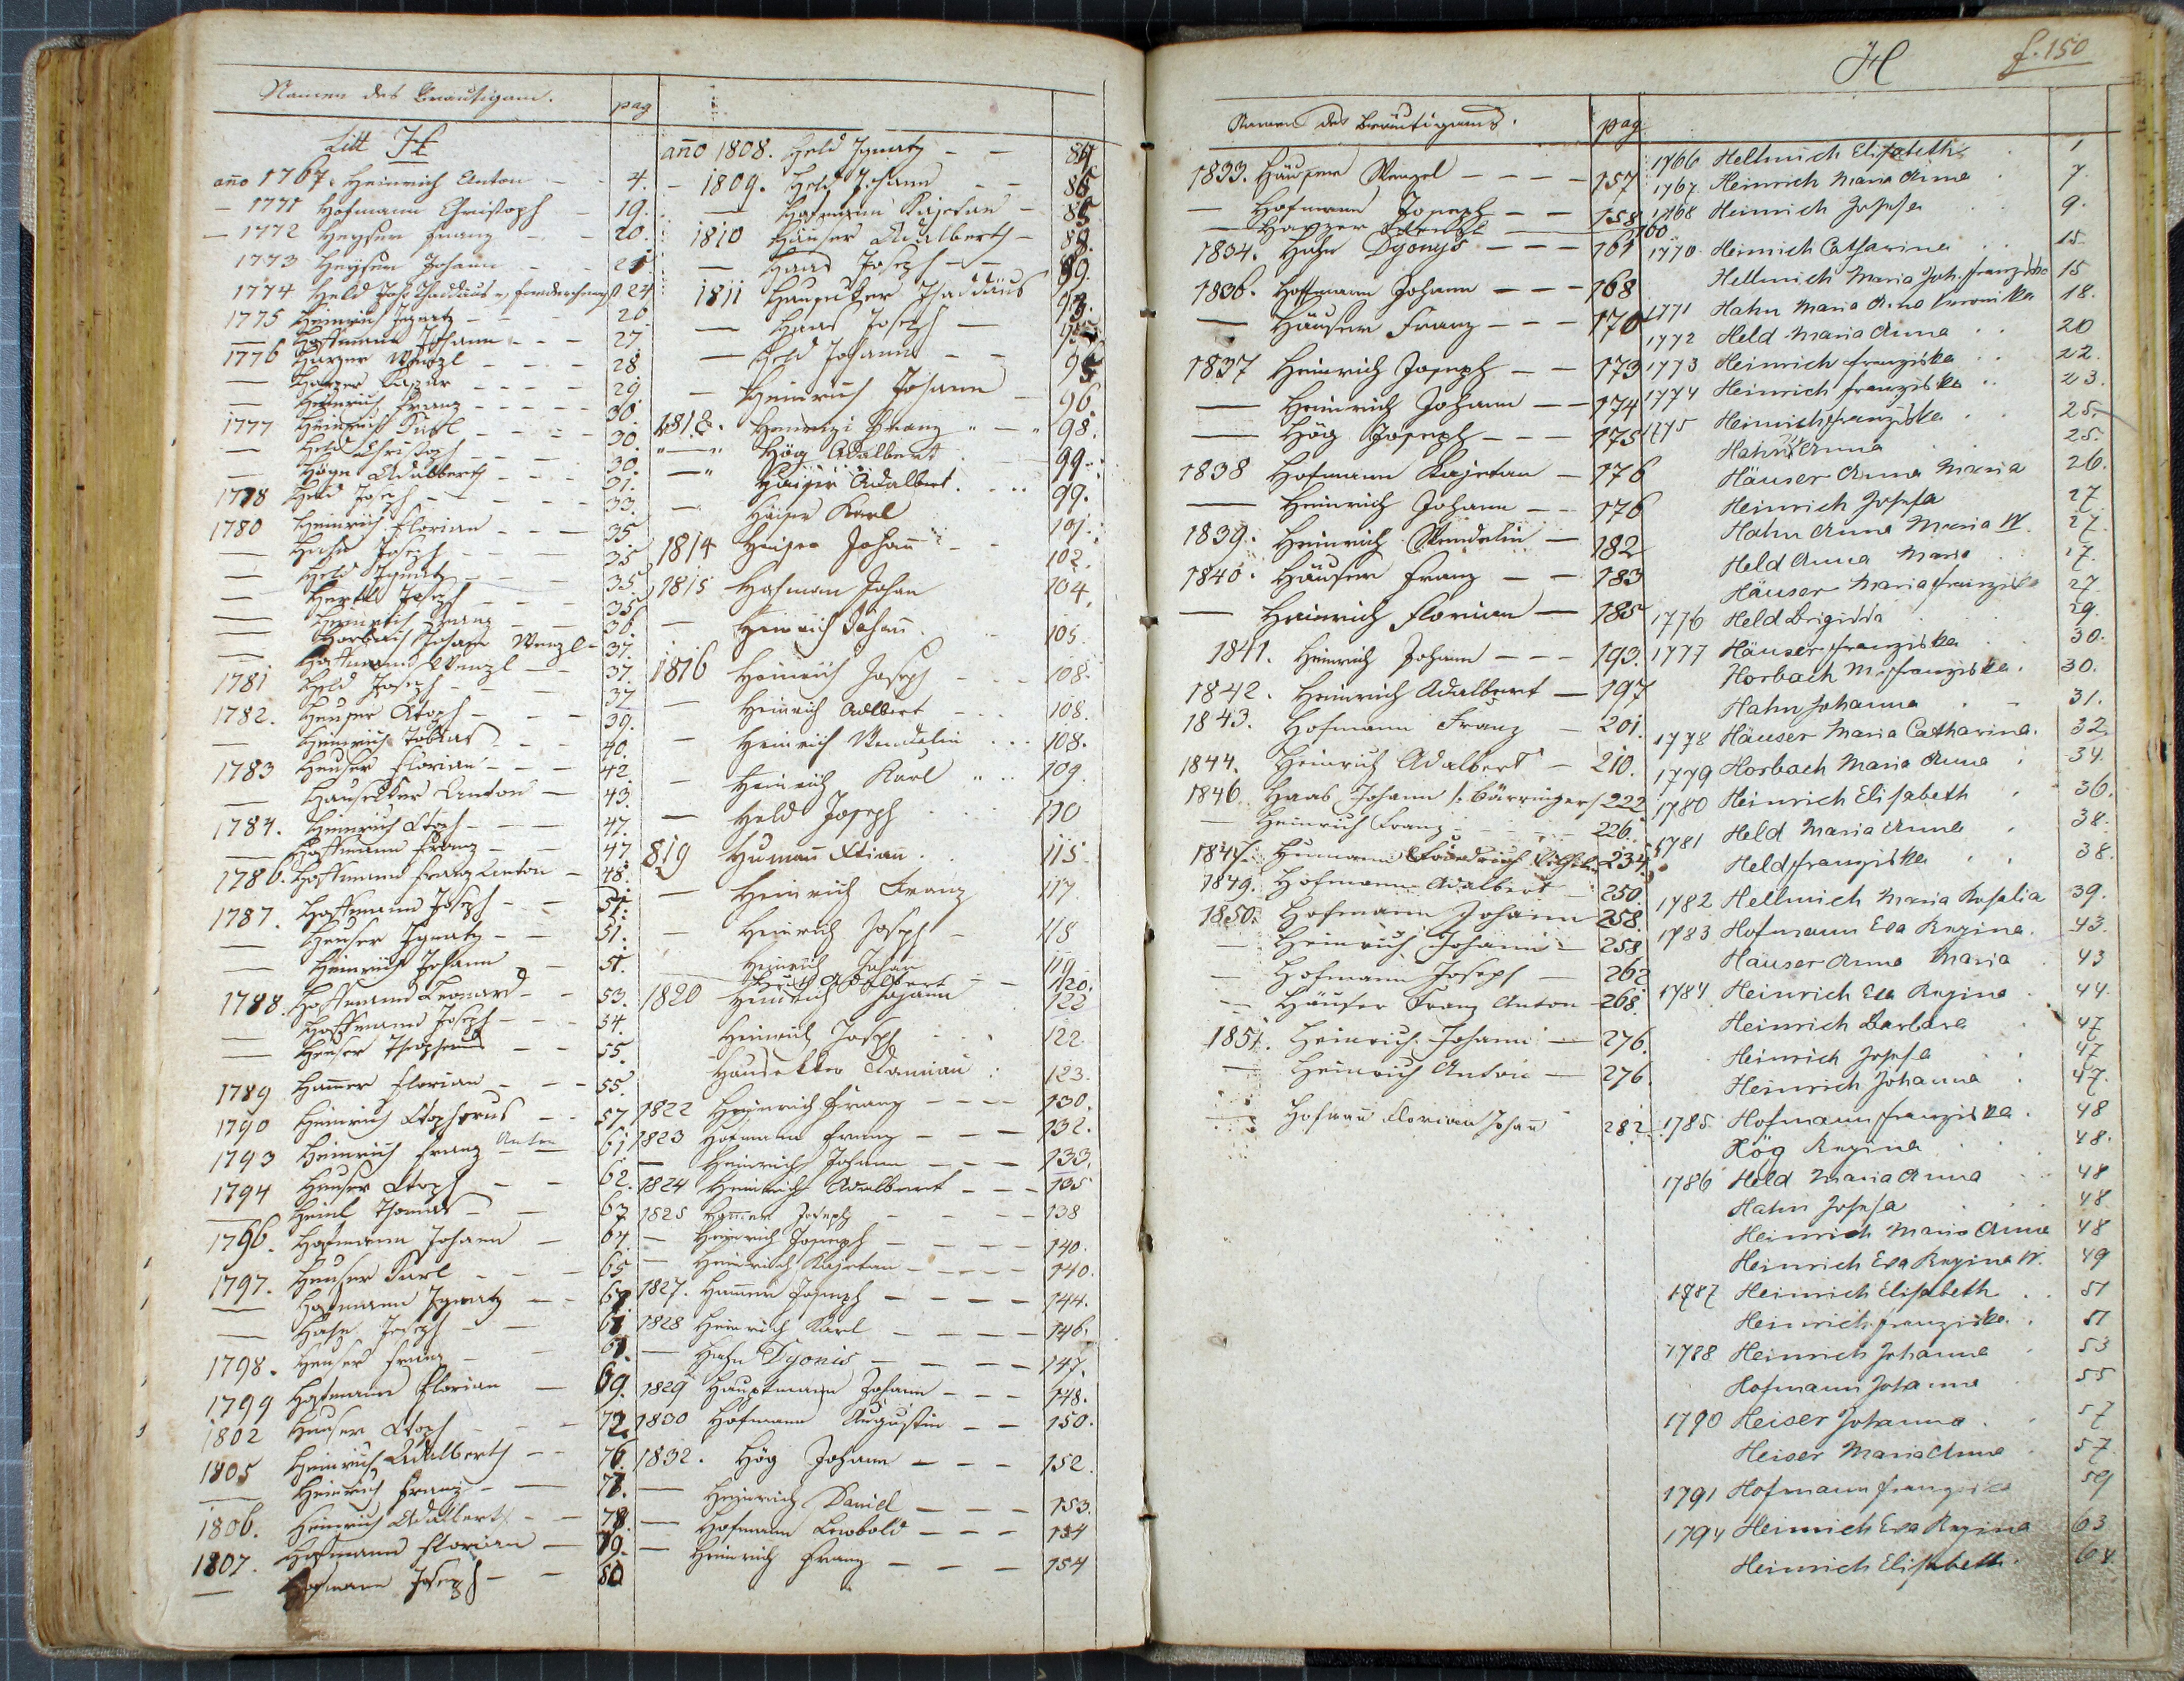 Namen des Bräutigam.
pag
Litt H
año 1767. Heinrich Anton 4.
1771 Hofmann Christoph 19.
1772 Heyser Franz 20.
1773 Heyser Johann 21
1774 Held Joh. Thaddäus 24
1775 Heinrich Ignatz 26
Hoffmann Johann 27
1776 Harzer Wenzl 28
Harzer Kaspar 29
Heinrich Franz 30.
1777 Heinrich Karl 30.
Held Christoph 30.
Högn Adalberth 31.
1778 Held Joseph 33.
1780 Heinrich Florian 35
Hahn Joseph 35
Held Ignatz 35
Joseph 35
Heinrich Franz 36
Horbach Johann Wenzl 37.
Hoffmann Wenzl 37.
1781 Held Joseph 37
1782. Heuser Xtoph 39.
Heinrich Tobias 40.
1783 Heuser Florian 42
Hausecker Anton 43.
1784. Heinrich Xtoph 47.
Hoffmann Franz 47
1786. Hoffmann Franz Anton 48.
1787. Hoffmann Joseph 51.
Heuser Ignatz 51.
Heinrich Johann 51.
1788. Hoffmann Leonard 53.
Hoffmann Joseph 54.
Heuser 55.
1789 Hamer Florian 55.
1790 Heinrich Xtophorus 57.
1793 Heinrich Franz Anton 61
1794 Heuser Xtoph 62.
Heinl Thomas 63
1796. Hofmann Johann 64
1797. Heuser Karl 65
Hofmann Ignatz 67
Hahn Joseph 67
1798. Heuser Franz 67.
1799 Hofmann Florian 69.
1802 Heuser Xtoph 72.
1805 Heinrich Adalberth 76.
Heinrich Franz 77.
1806. Heinrich Adalbert 78.
1807. Hofmann Florian 79.
Hofmann Joseph 80
año 1808. Held Ignatz 84
1809. Held Johann 86
Hofmann Kajetan 86
1810 Häuser Adalberth 88.
Haas Joseph 89.
1811 Hausecker Thaddäus 93.
Haas Joseph
Held Johann 95
Heinrich Johann 96
1812. Franz 98.
Hög Adalbert 99
Haiser Adalbert. 99.
Häiser Karl 101.
1814 Heiser Johann 102.
1815 Hofmann Johan 104.
Heinrich Johann 105
1816 Heinrich Joseph 108.
Heinrich Adlbert 108.
Heinrich Wendelin 108.
Heinrich Karl 109.
Held Joseph 110
819 Humann Xtian. 115
Heinrich Franz 117
Heinrich Joseph 118
Heinrich Johan 119
Adalbert 120.
1820 Heinrich Johann 122
Heinrich Joseph 122
Hausekker Damian 123.
1822 Heinrich Franz 130.
1823 Hofmann Franz 132.
Heinrich Johann 133.
1824 Heinrich Adalbert 135
1825 Hamer Joseph 138
Heinrich Joseph 140.
Heinrich Kajetan 140.
1827. Hamer Joseph 144.
1828 Heinrich Karl 146.
Hahn Dyonis 147.
1829 Hauptmann Johann 148.
1830 Hofmann Augustin 150.
1832. Hög Johann 152.
Heinrich Daniel 153.
Hofmann Leobold 154
Heinrich Franz 154
H
f. 150
Namen des Bräutigams.
pag
1833. Häuser Wenzel 157
Hofmann Joseph 158
Harzer Wenzl 160
1834. Hahn Dyonys 161
1836. Hoffmann Johann 168
Häuser Franz 170
1837 Heinrich Joseph 173
Heinrich Johann 174
Hög Joseph 175
1838 Hofmann Kajetan 176
Heinrich Johann 176
1839. Heinrich Wendelin 182
1840. Häuser Franz 183
Heinrich Florian 185
1841. Heinrich Johann 193.
1842. Heinrich Adalbert 197
1843. Hofmann Franz 201.
1844. Heinrich Adalbert 210.
1846 Haas Johann /: Bärringer/ 222
Heinrich Franz 226.
1847. Humann Friedrich Wilhelm 234.
1849. Hofmann Adalbert 250.
1850. Hofmann Johann 258.
Heinrich Johann 258
Hofmann Joseph 262
Häuser Franz Anton 268.
1851. Heinrich Johann 276.
Heinrich Anton 276.
Hofmañ Florian Johañ 282.
1766 Hellmich Elisabeth 1
1767. Heinrich Maria Anna 7.
1768 Heinrich Josefa 9.
1770 Heinrich Catharina 15
Hellmich Maria Joh. Franziska 15
1771 Hahn Maria Anna Veronika 18.
1772 Held Maria Anna 20
1773 Heinrich Franziska 22.
1774 Heinrich Franziska 23.
1775 Heinrich Franziska 25.
Hahn M. Anna 25.
Häuser Anna Maria 26.
Heinrich Josefa 27
Hahn Anna Maria W. 27.
Held Anna Maria 27.
Häuser Maria Franziska 27
1776 Held Brigitta 29.
1777 Häuser Franziska 30.
Horbach M. Franziska. 30.
Hahn Johanna 31.
1778 Häuser Maria Catharina. 32.
1779 Horbach Maria Anna 34.
1780 Heinrich Elisabeth 36.
1781 Held Maria Anna 38.
Held Franziska 38.
1782 Hellmich Maria Rosalia 39.
1783 Hofmann Eva Regina. 43.
Hauser Anna Maria 43
1784 Heinrich Eva Regina 44.
Heinrich Barbara 47
Heinrich Josefa 47
Heinrich Johanna 47.
1785 Hofmann Franziska 48
Hög Regina 48.
1786 Held Maria Anna 48
Hahn Josefa 48
Heinrich Maria Anna 48
Heinrich Eva Regina W. 49
1787 Heinrich Elisabeth 51
Heinrich Franziska. 51
1788 Heinrich Johanna 53
Hofmann Johanna 55
1790 Heiser Johanna 57
Heiser Maria Anna 57.
1791 Hofmann Franziska 59
1794 Heinrich Eva Regina 63
Heinrich Elisabeth. 64.